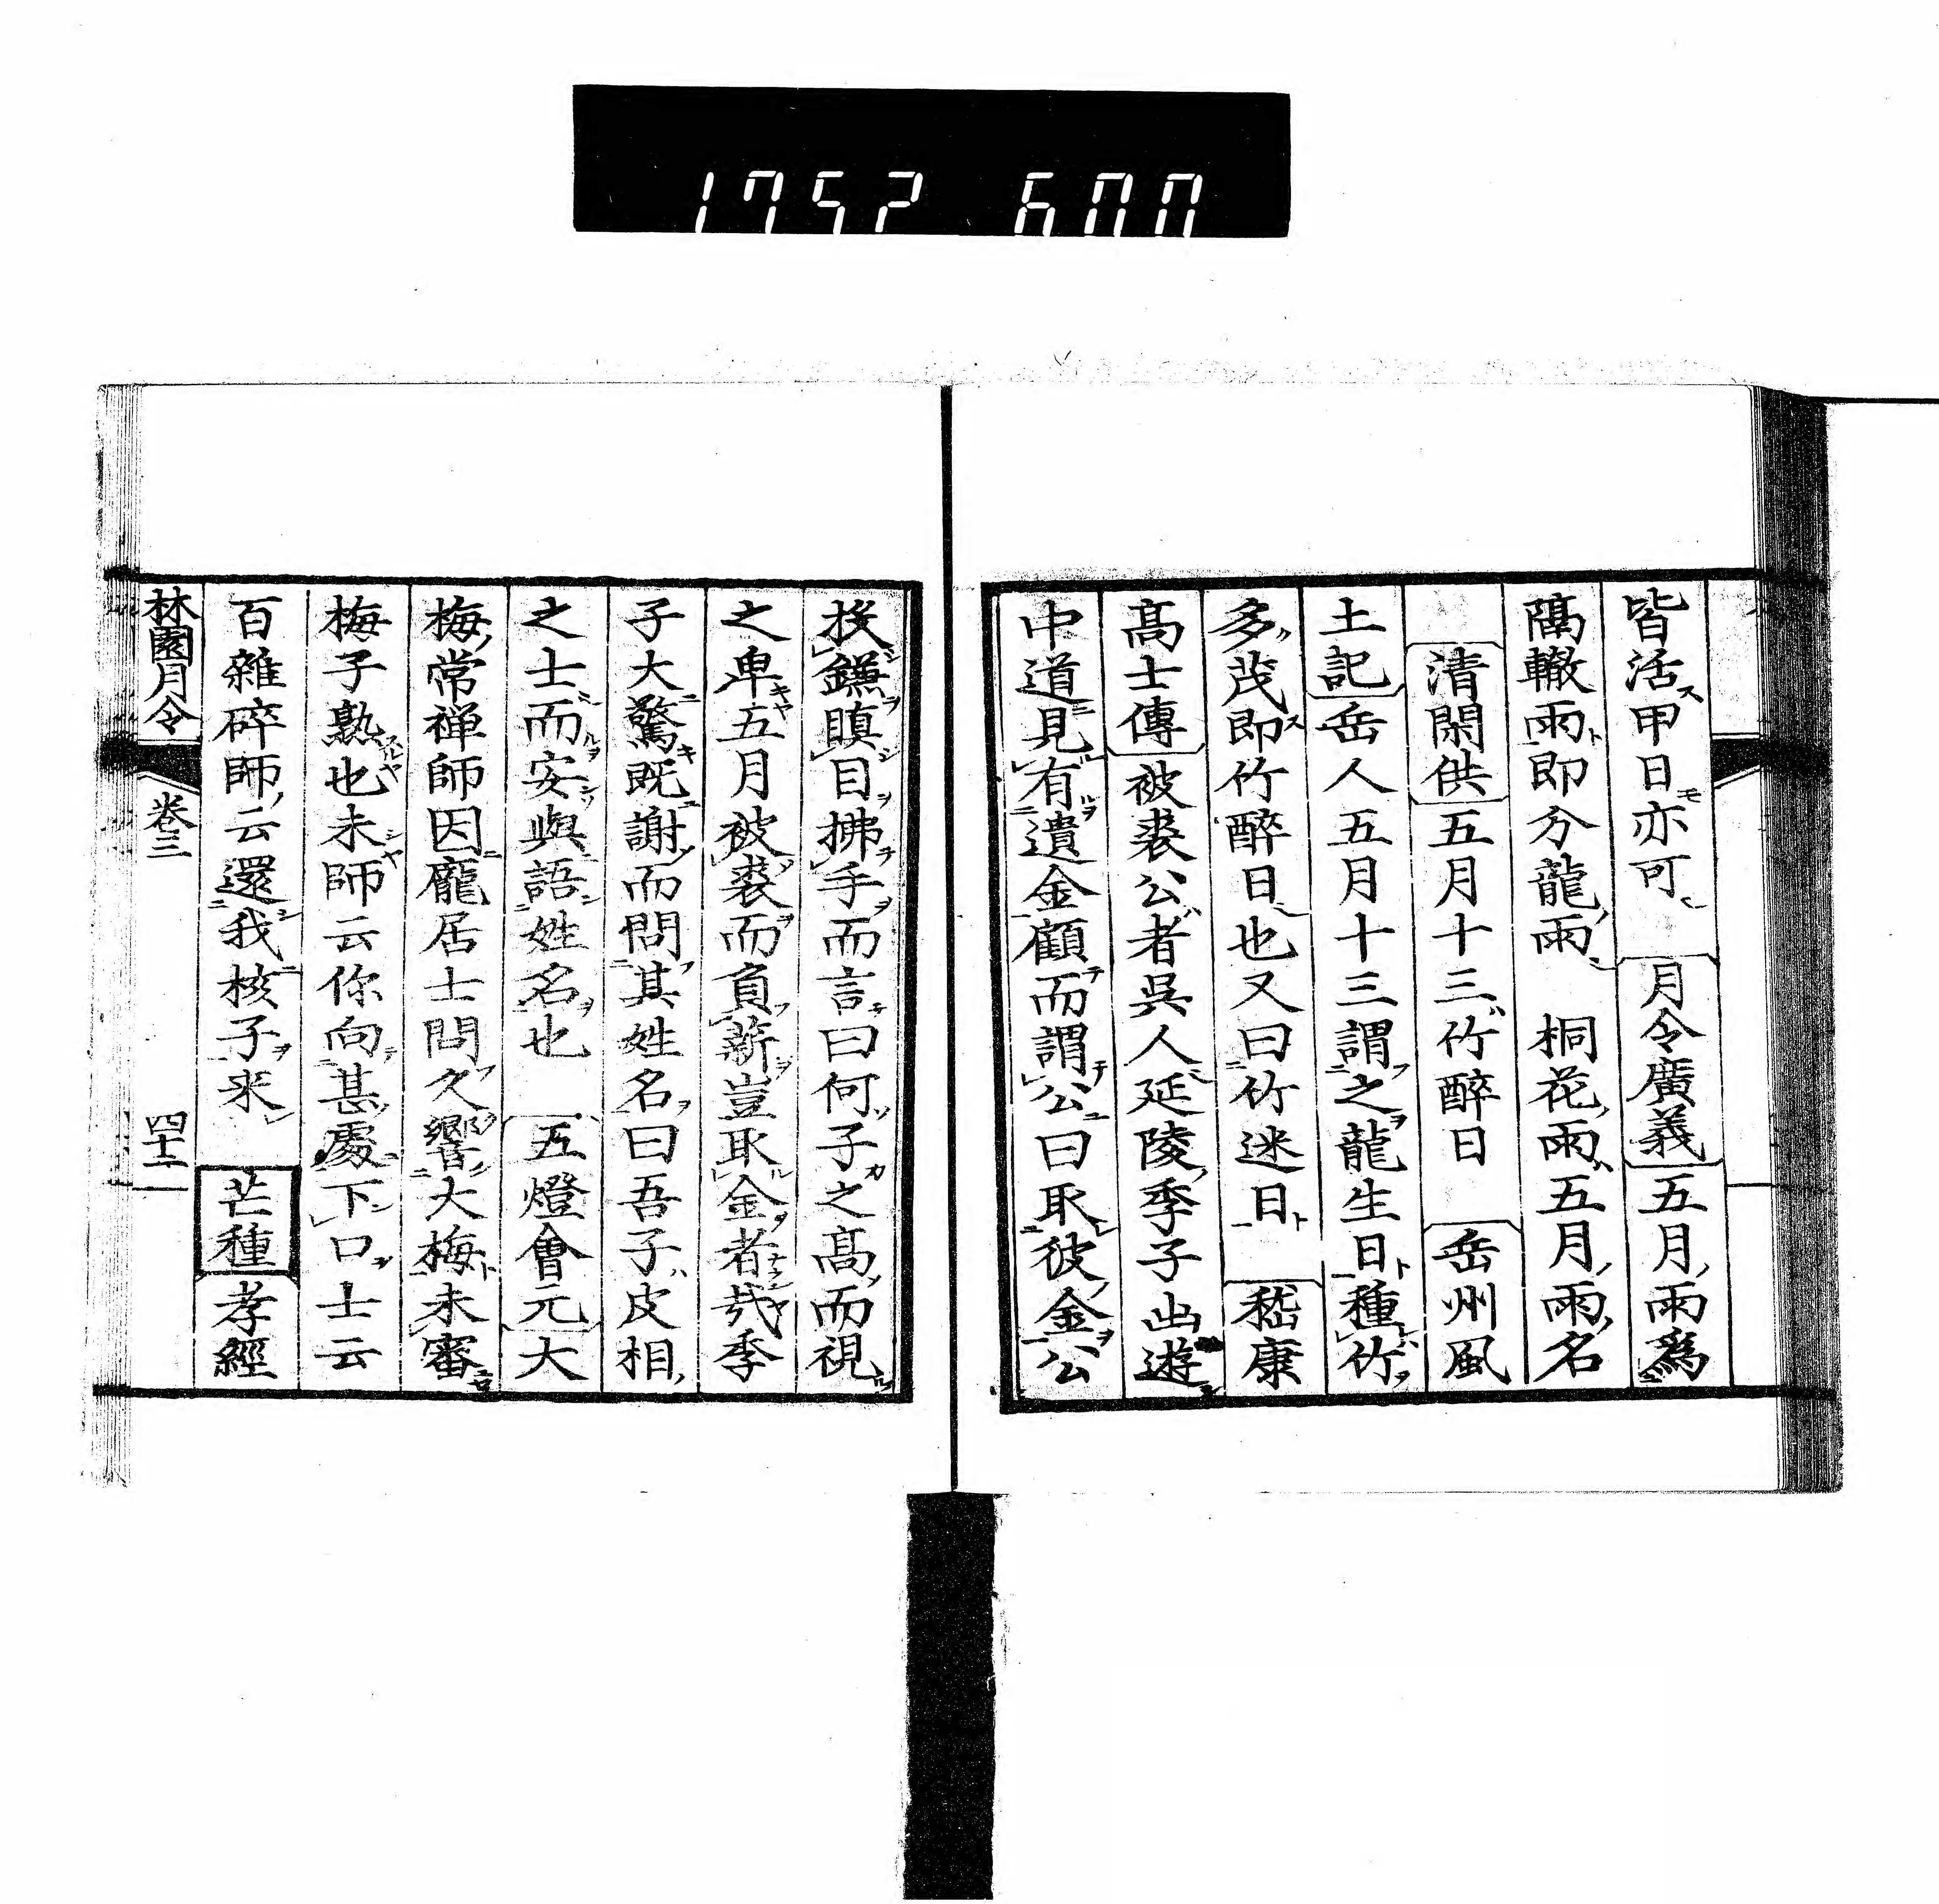 1752 600
皆活甲日亦可　月令廣義五月雨爲
隔轍雨即分龍雨　桐花雨五月雨名
清閑供五月十三竹醉日　岳州風
土記岳人五月十三謂之龍生日種竹
多茂即竹醉日也又曰竹迷日　嵇康
高士傳被裘公者吳人延陵季子出遊
中道見有遺金顧而謂公曰取彼金公
投鎌瞋目拂手而言曰何子之高而視
之卑五月被裘而負薪豈取金者哉季
子大驚既謝而問其姓名曰吾子皮相
之士而安與語姓名也　五燈會元大
梅常禅師因龐居士問久響大梅未審
梅子熟也未師云你向甚處下口士云
百雜碎師云還我核子来　芒種孝經
林園月令　卷三　四十二